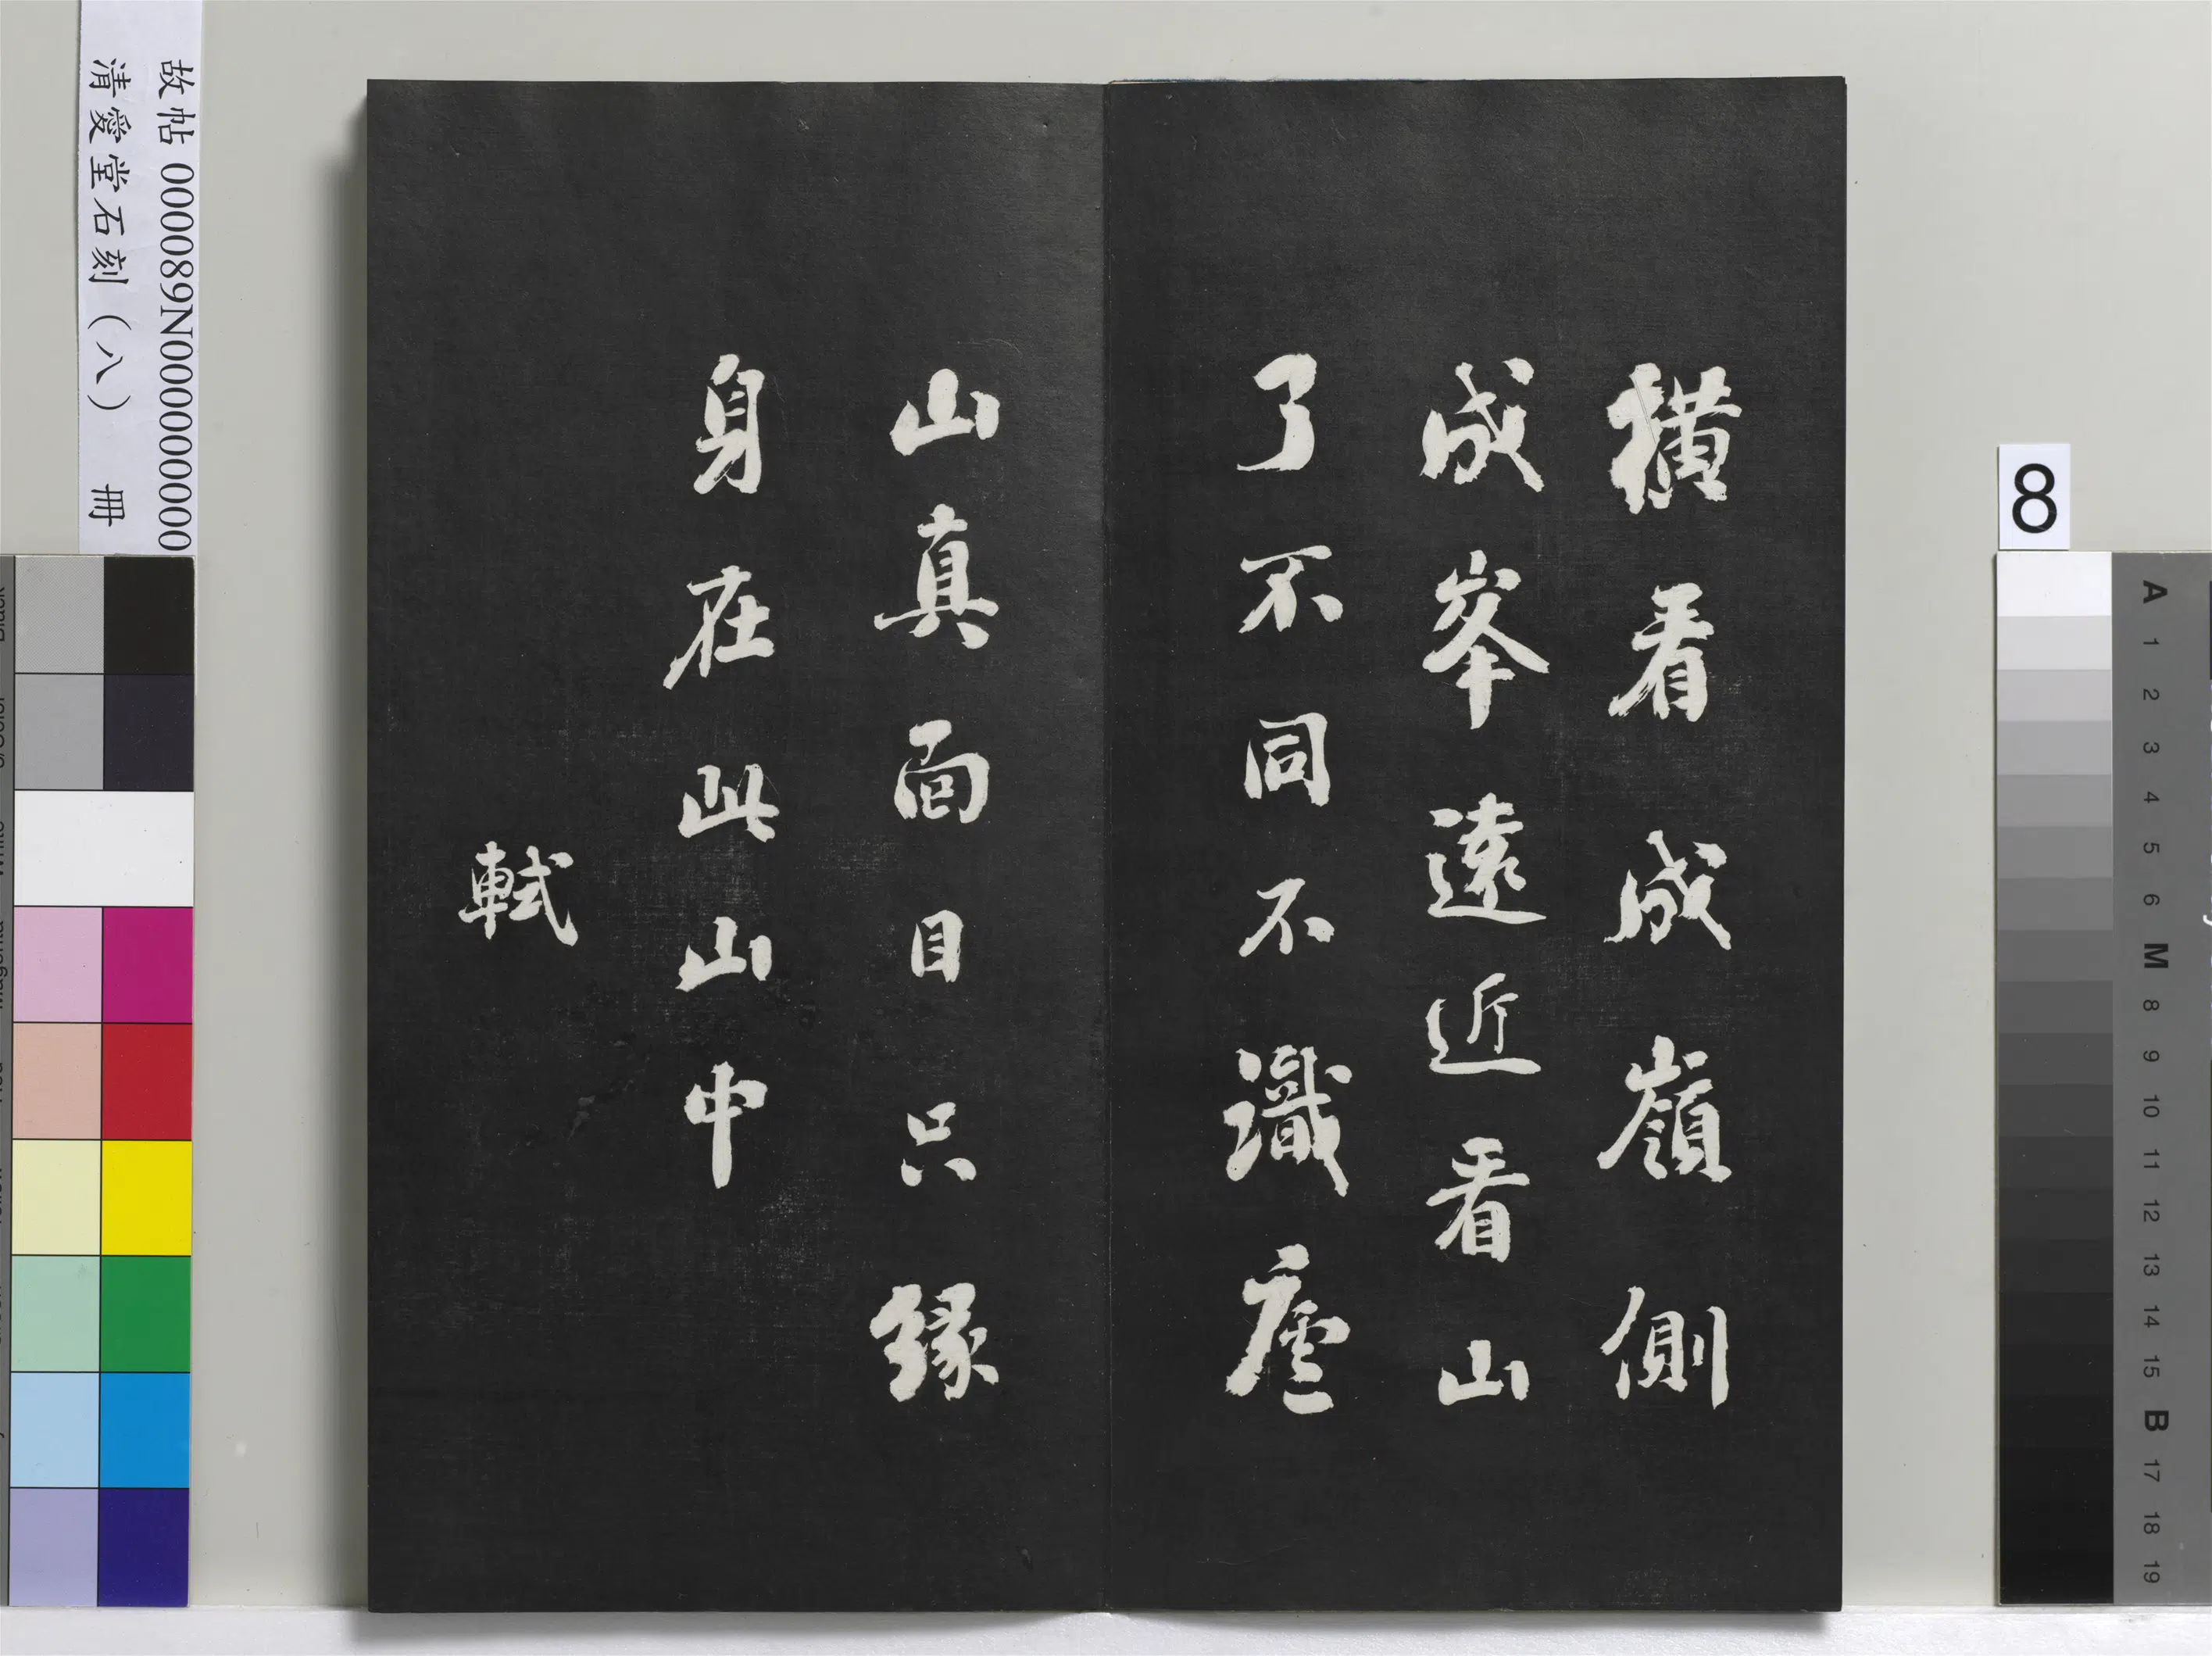 橫看成嶺側
成峯遠近看山
了不同不識廬
山真面目只緣
身在此山中
軾
故帖 000089N000000000
清愛堂石刻（八） 冊
8
A
1
2
3
4
5
6
M
8
9
10
11
12
13
14
15
B
17
18
19